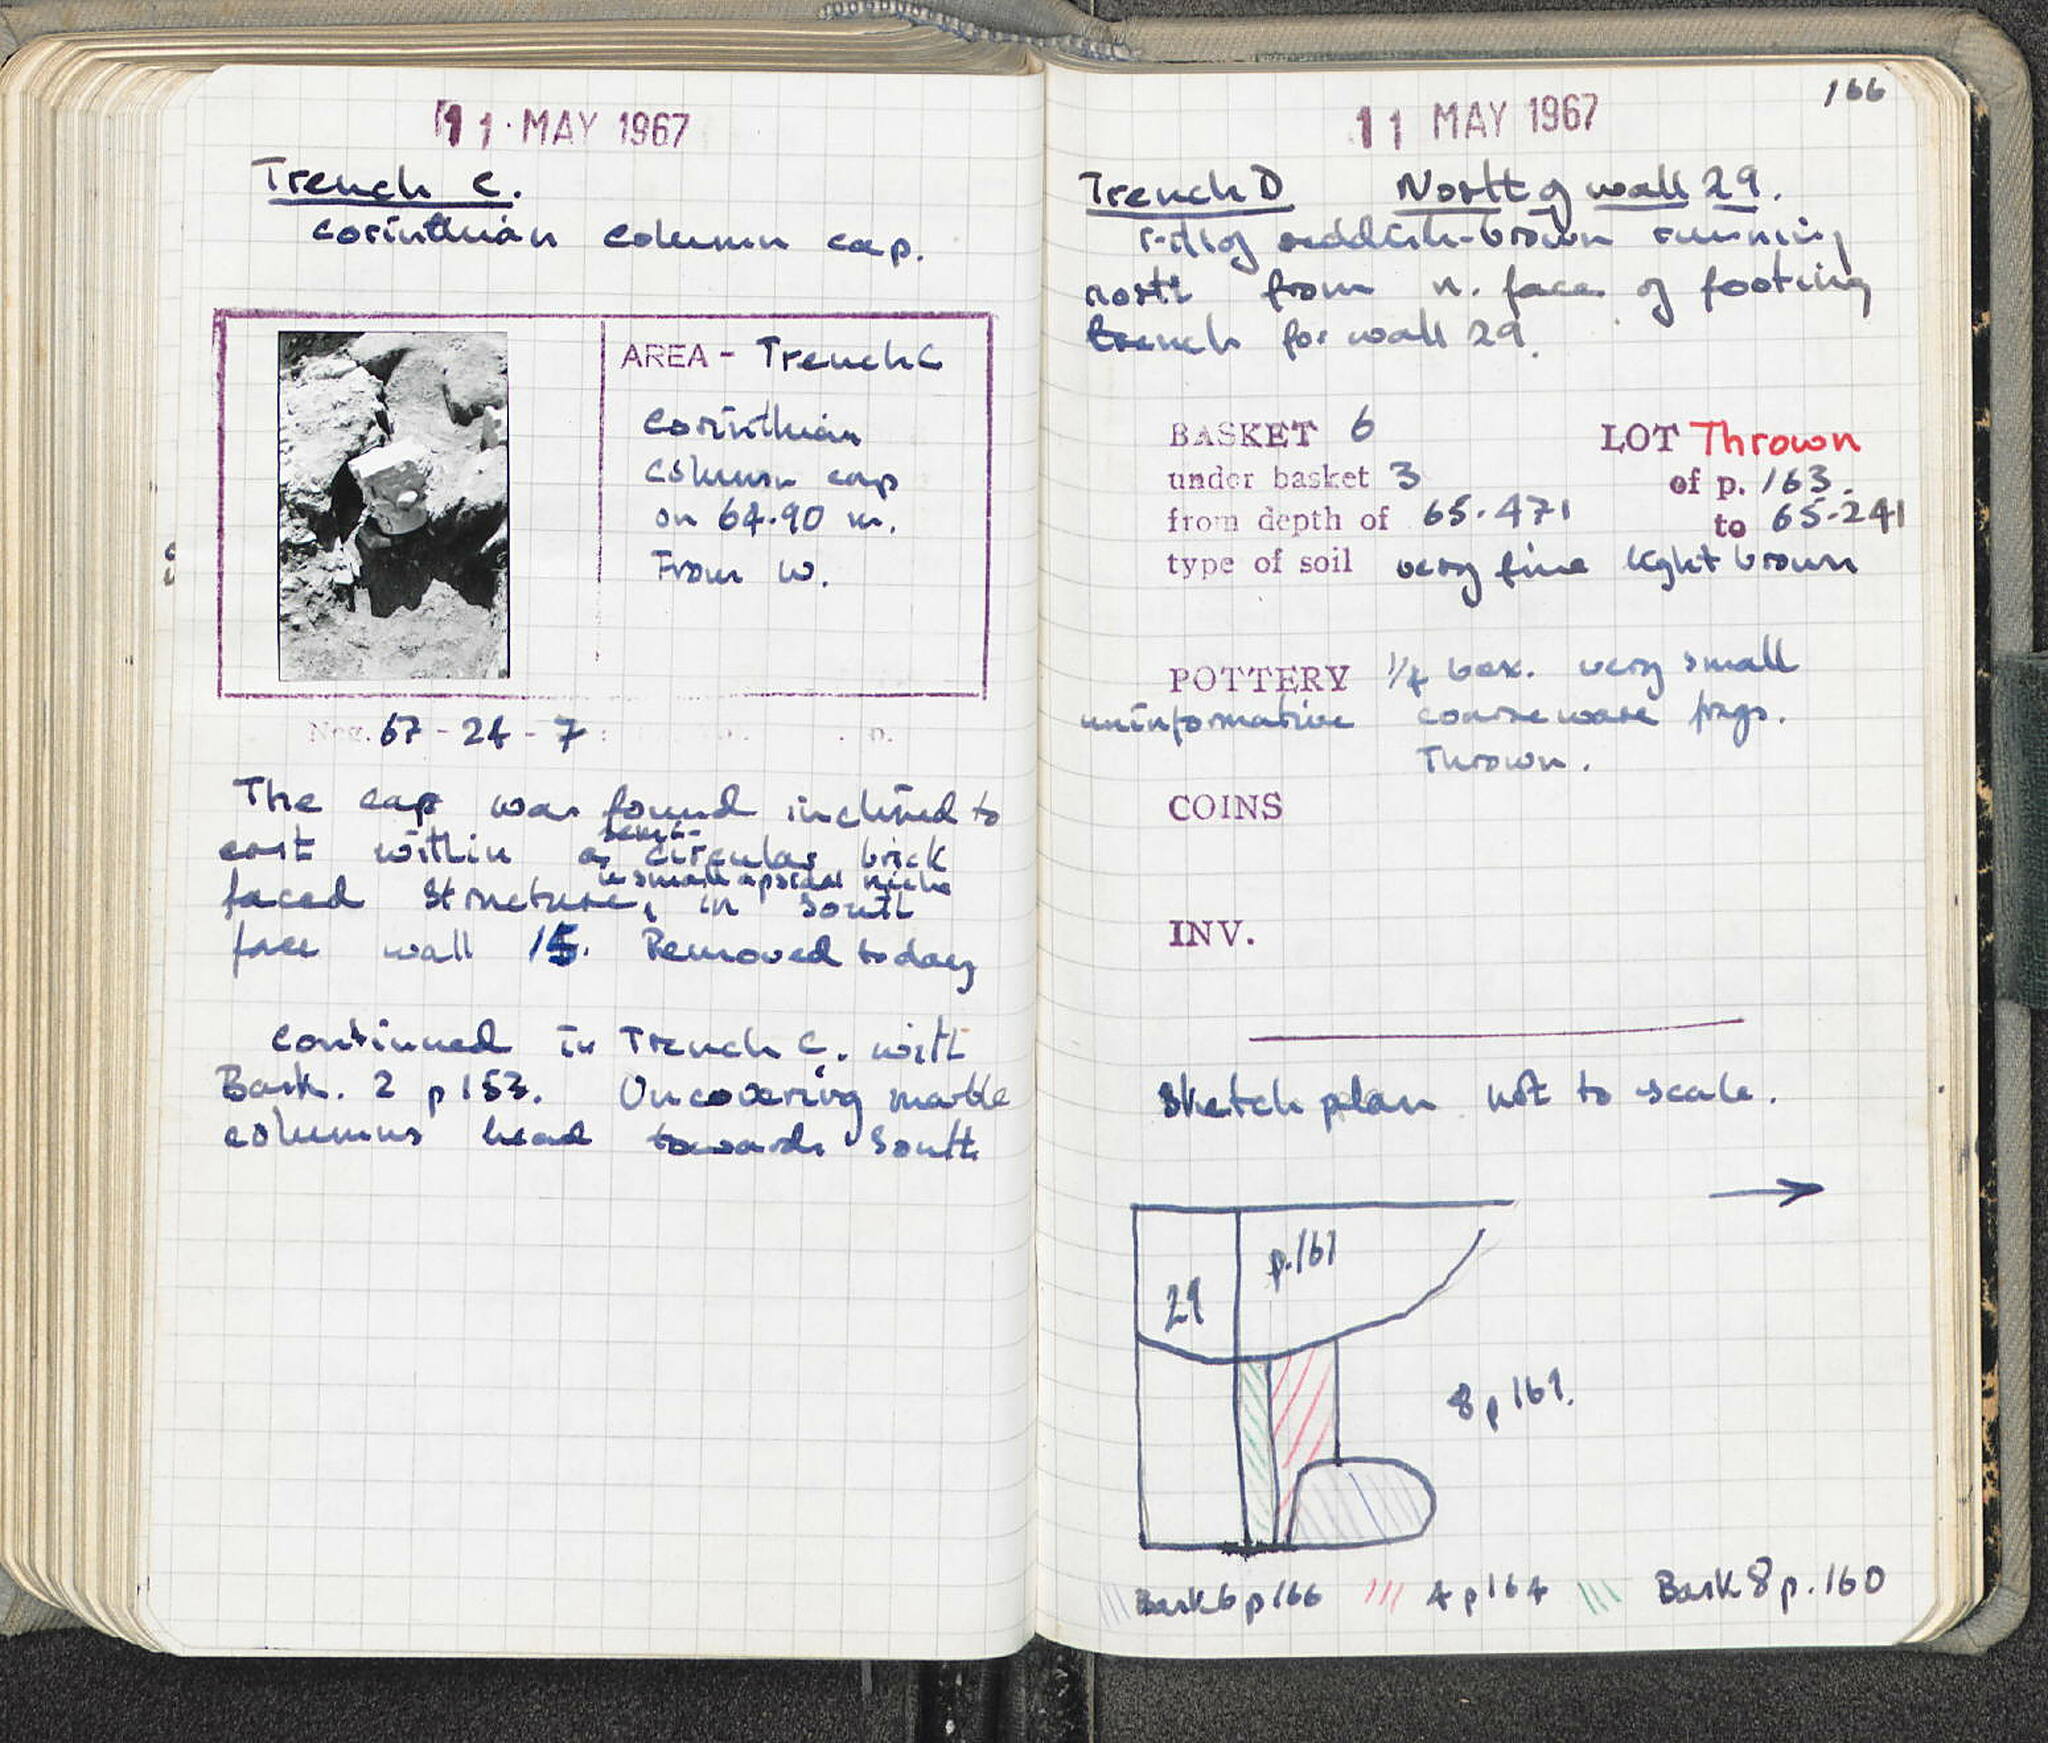 11 MAY 1967
Trench C.
Corinthian column cap.
AREA - Trench C
Corinthian
column cap
on 64.90 m.
From W.
Neg. 67 - 24 - 7
The cap was found inclined to
east within a semi-circular brick
faced structure, in south
face wall 15. Removed today
continued in Trench C. with
Bask. 2 p 153. Uncovering marble
columns head towards south
166
11 MAY 1967
Trench D North of wall 29.
reddish-brown running
north from n. face of footing
trench for wall 29.
BASKET 6 LOT Thrown
under basket 3 of p. 163.
from depth of 65.471 to 65.241
type of soil very fine light brown
POTTERY 1/4 box. very small
uninformative coarse ware frags.
Thrown.
COINS
INV.
Sketch plan not to scale.
29
p.161
8 p 161.
Bask 6 p 166 4 p 164 Bask 8 p. 160